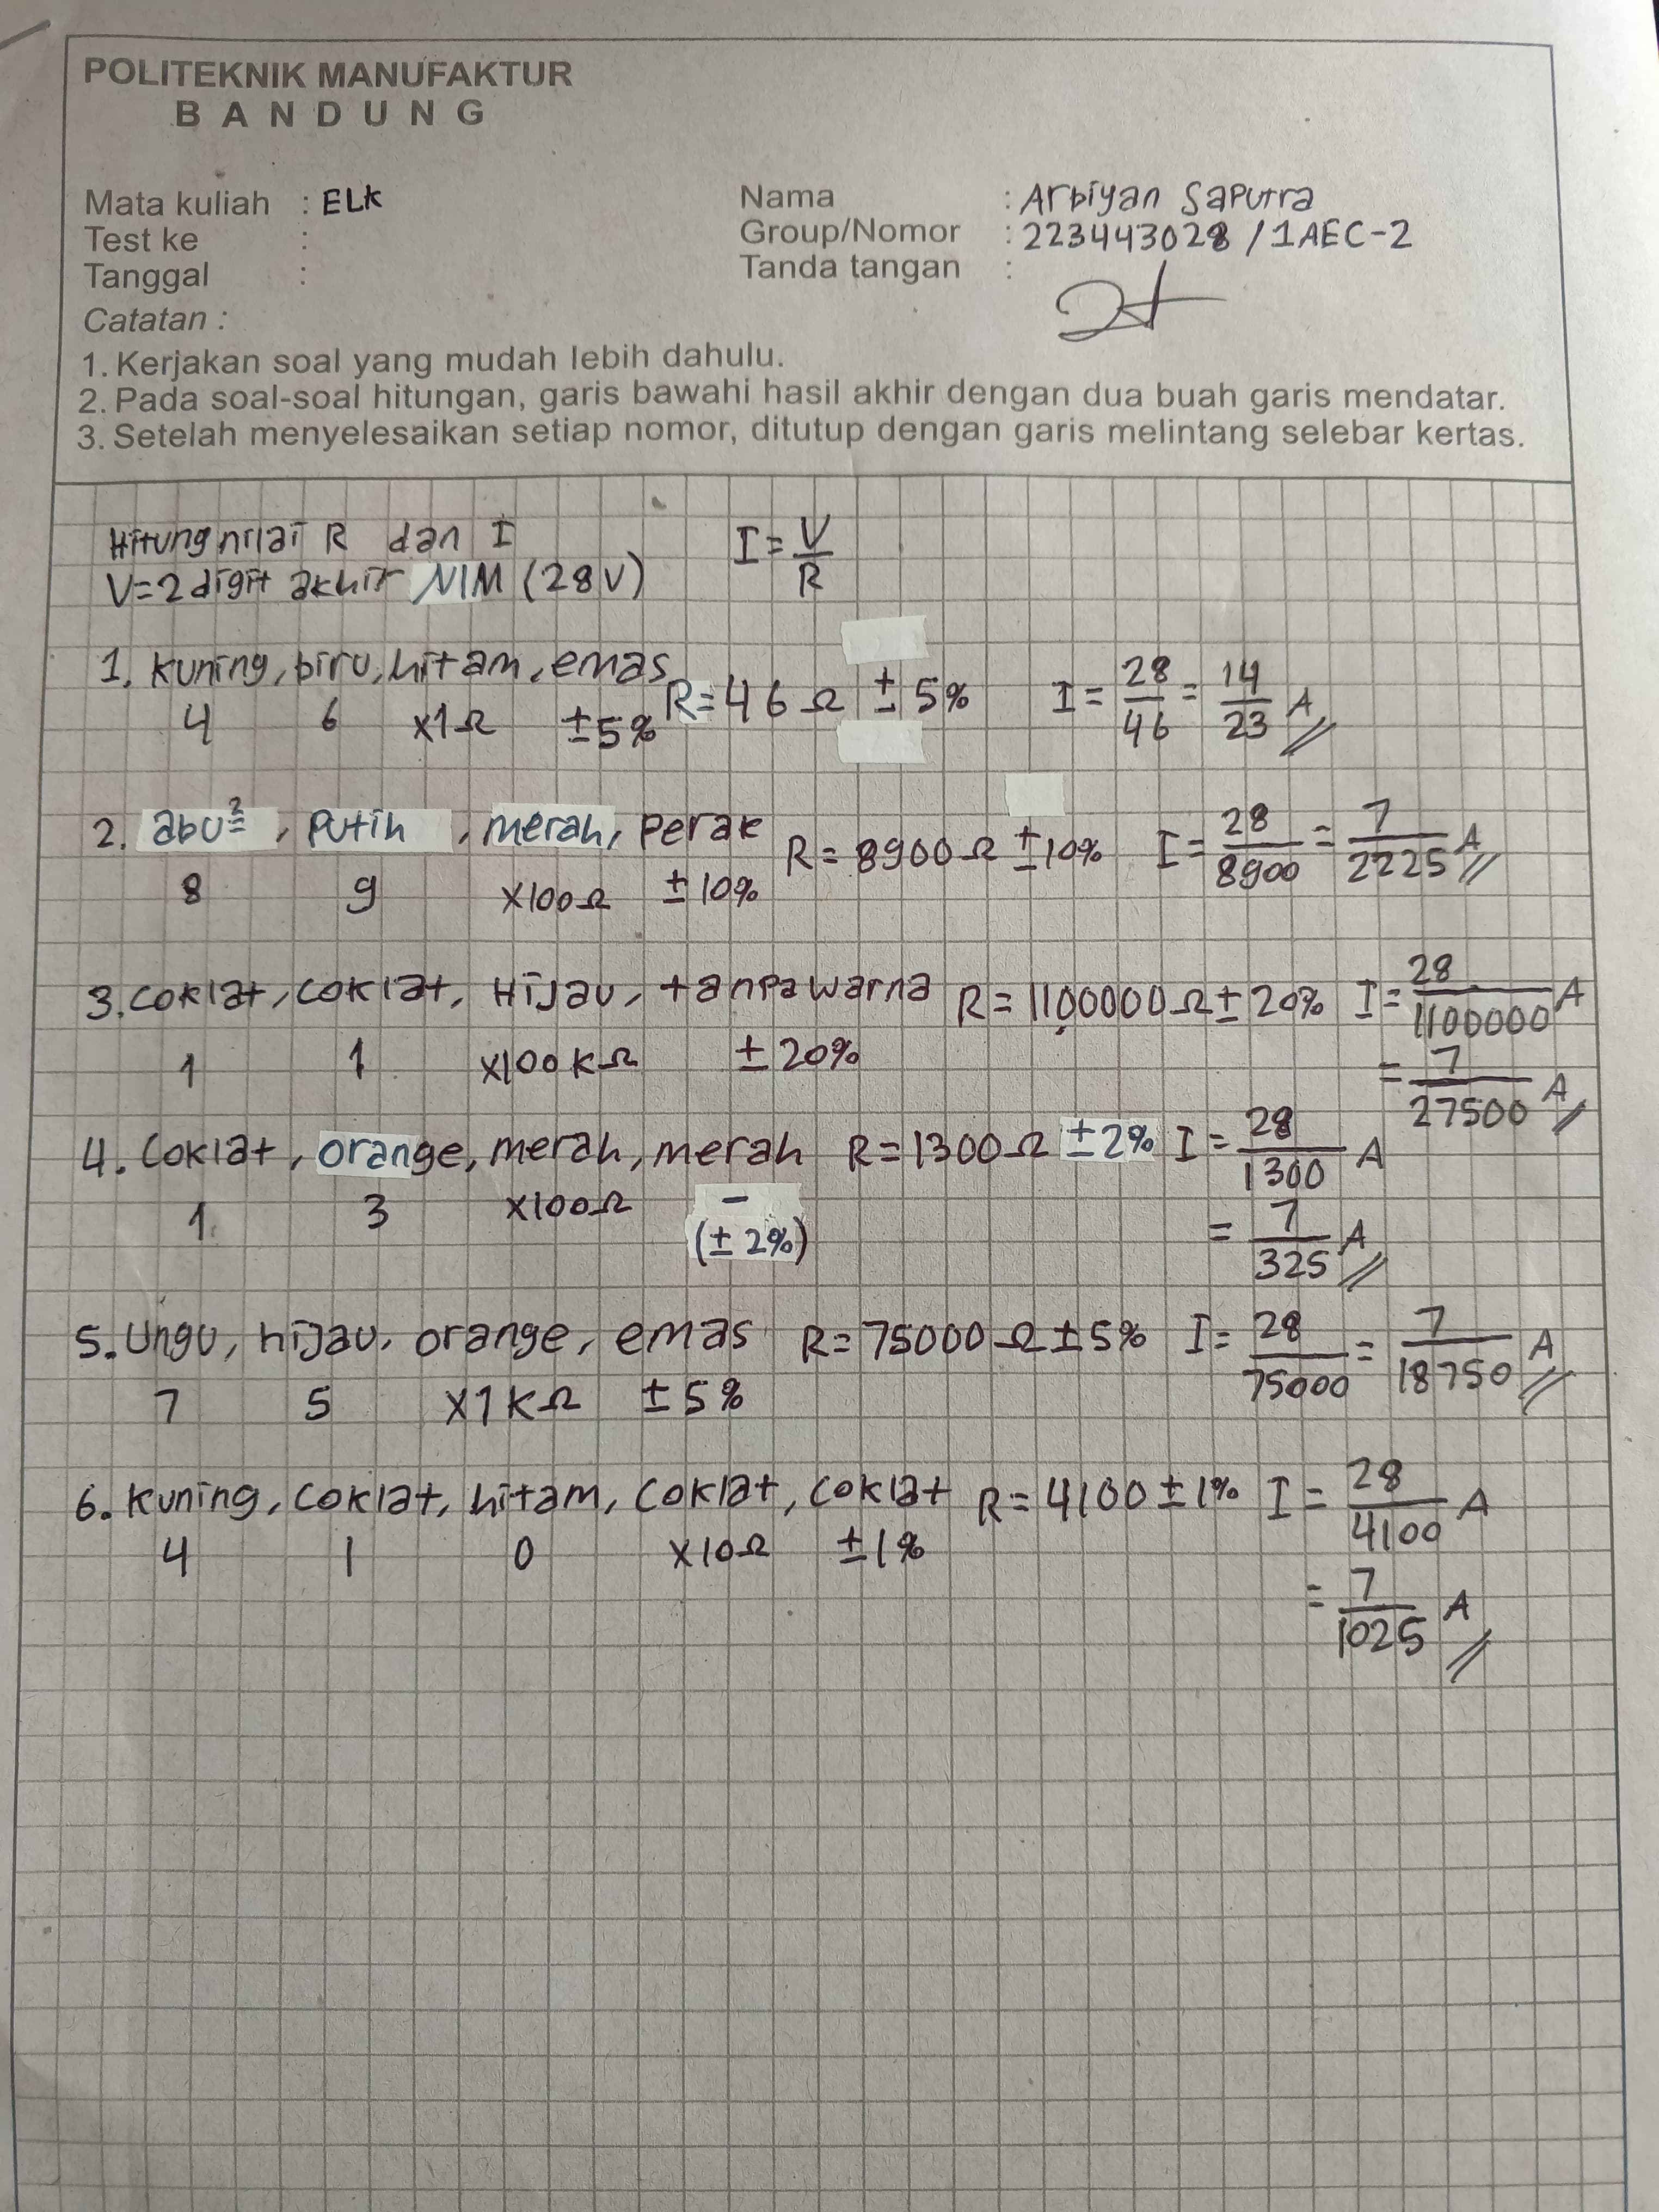 POLITEKNIK MANUFAKTUR
BANDUNG
Mata kuliah : ELK
Test ke :
Tanggal :
Nama : Arbiyan Saputra
Group/Nomor : 223443028 / 1AEC-2
Tanda tangan :
Catatan :
1. Kerjakan soal yang mudah lebih dahulu.
2. Pada soal-soal hitungan, garis bawahi hasil akhir dengan dua buah garis mendatar.
3. Setelah menyelesaikan setiap nomor, ditutup dengan garis melintang selebar kertas.
Hitung nilai R dan I I = V/R
V=2 digit akhir NIM (28 V)
1. kuning, biru, hitam, emas R = 46 Ω ± 5% I = 28/46 = 14/23 A
4 6 x1Ω ±5%
2. abu², putih, merah, perak R = 8900Ω ±10% I = 28/8900 = 7/2225 A
8 9 x100Ω ±10%
3. coklat, coklat, Hijau, tanpa warna R = 1100000 Ω ± 20% I = 28/1100000 A
1 1 x100kΩ ± 20%
= 7/27500 A
4. Coklat, orange, merah, merah R = 1300Ω ±2% I = 28/1300 A
1 3 x100Ω –
(± 2%)
= 7/325 A
5. Ungu, hijau, orange, emas R = 75000 Ω ± 5% I = 28/75000 = 7/18750 A
7 5 x1kΩ ± 5%
6. Kuning, Coklat, hitam, Coklat, coklat R = 4100 ± 1% I = 28/4100 A
4 1 0 x10Ω ±1%
= 7/1025 A